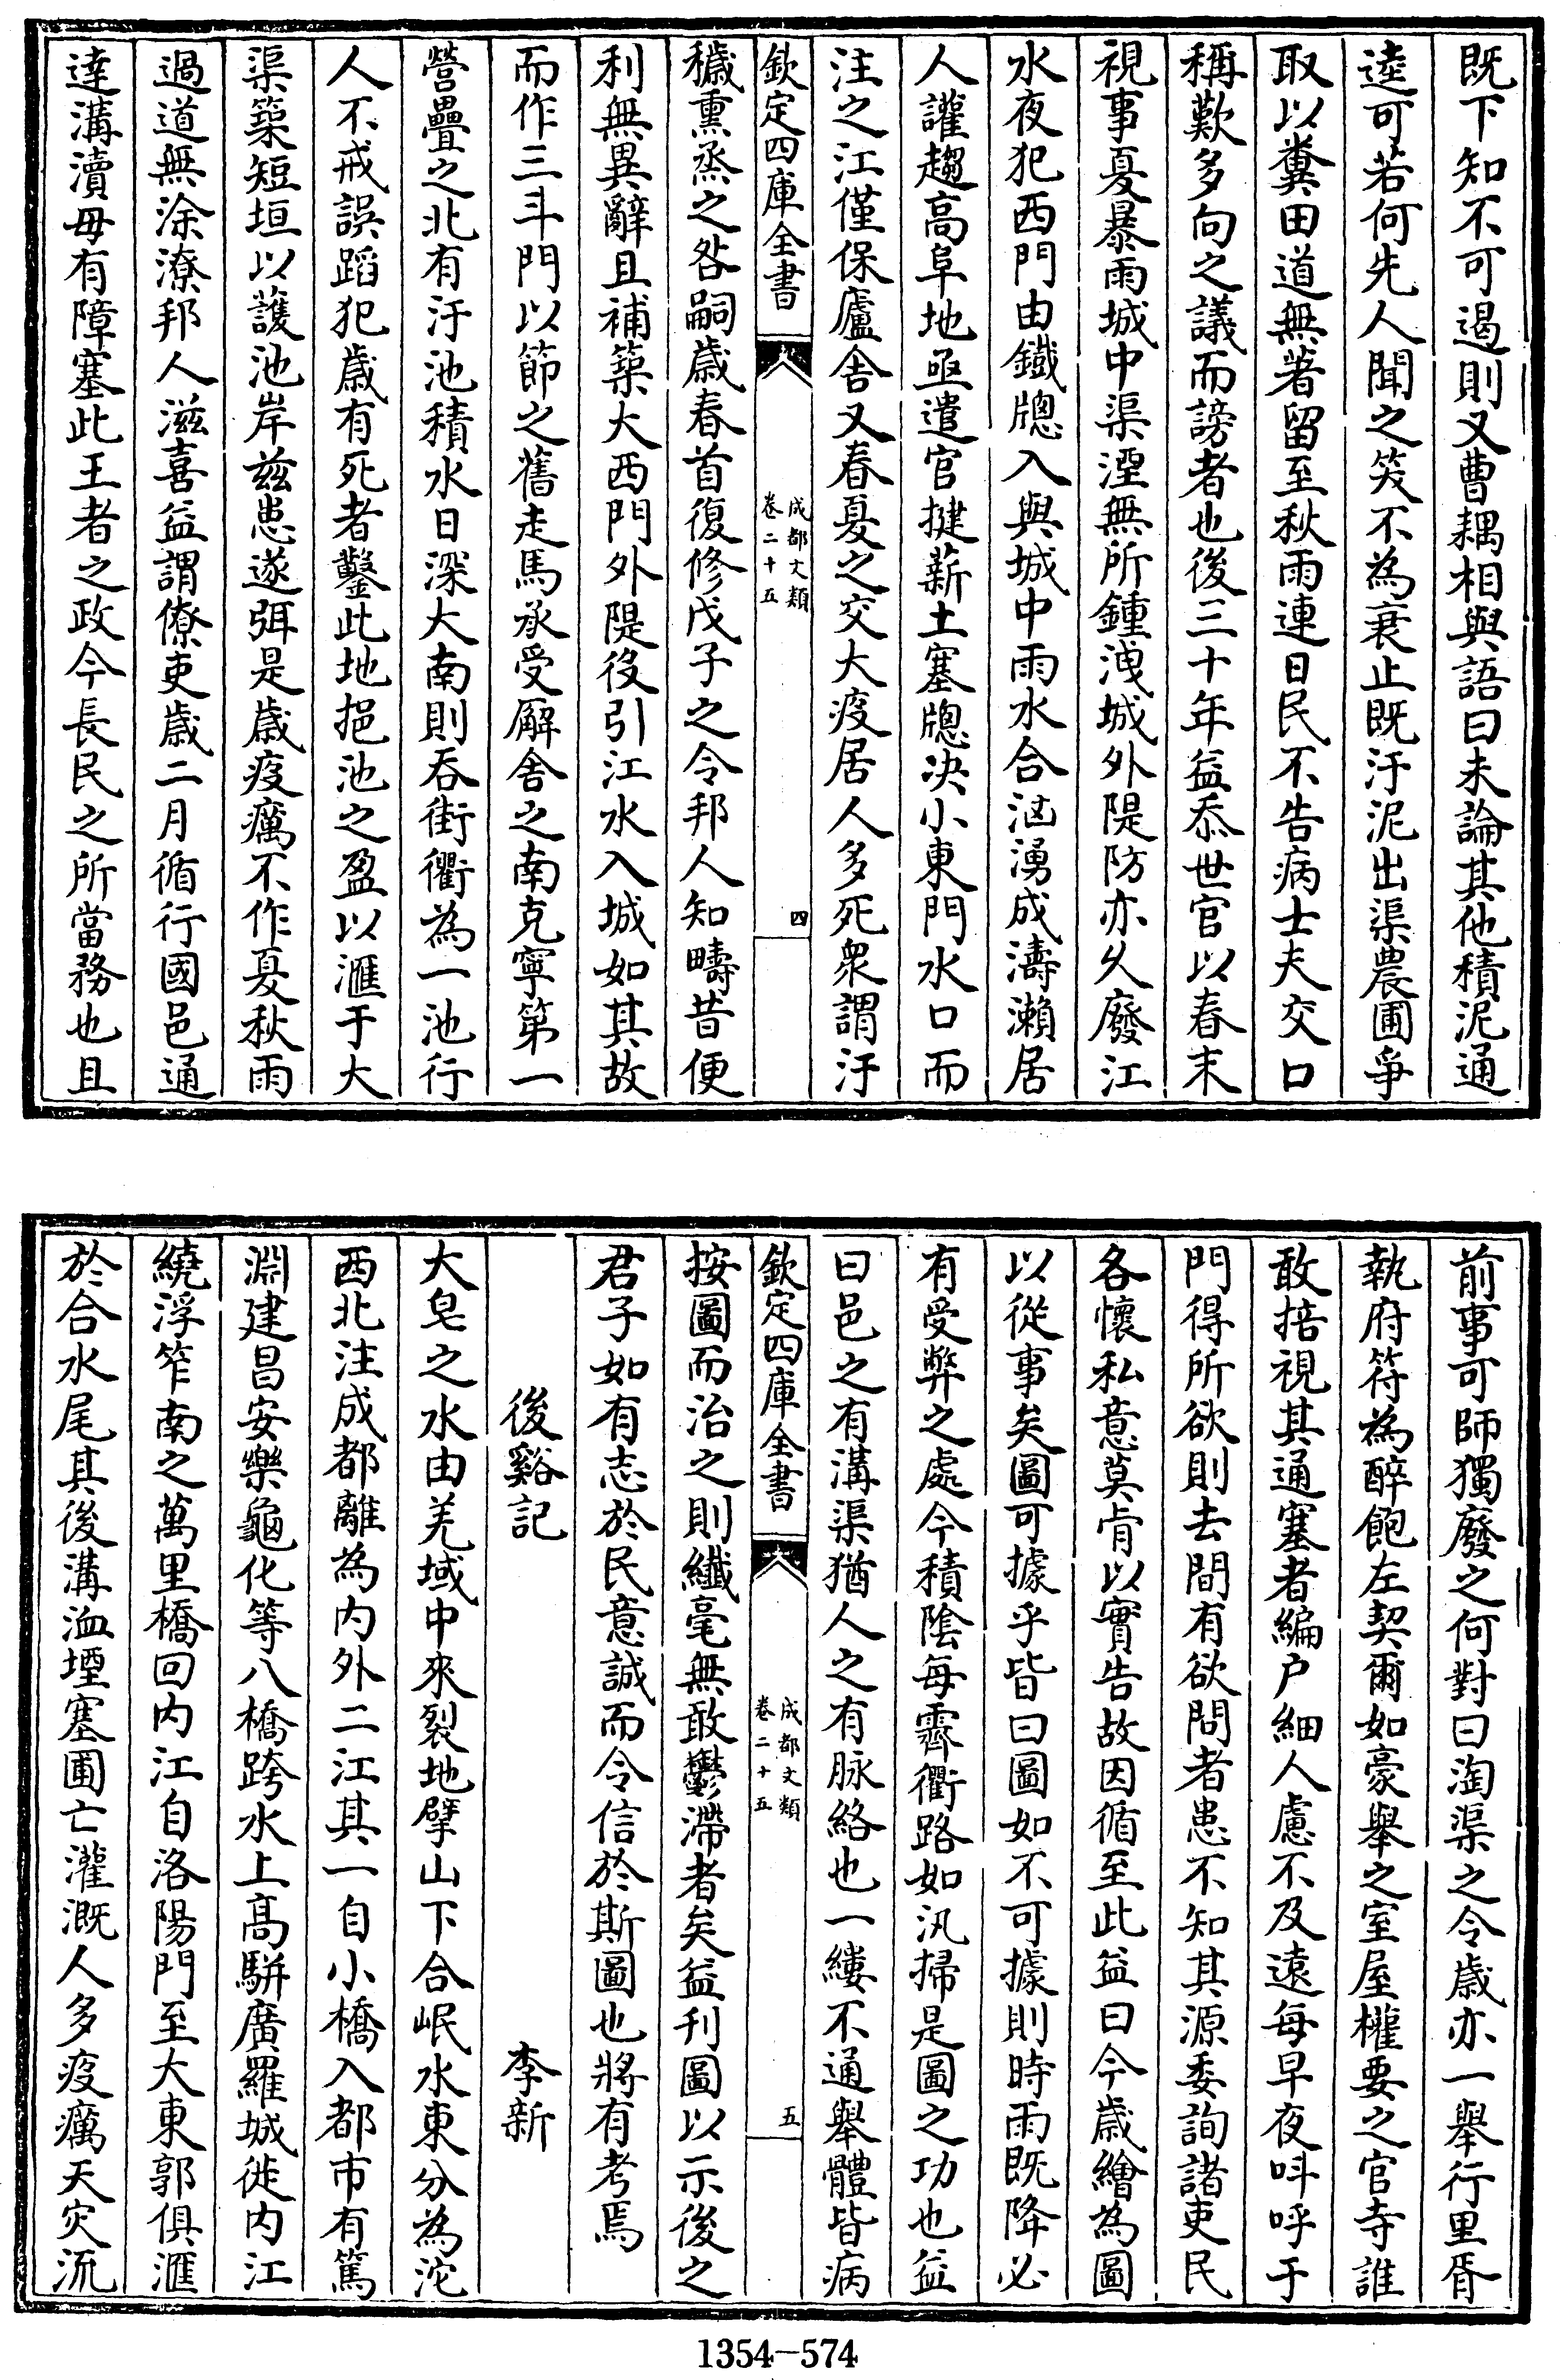 既下知不可遏則又曹耦相與語曰未論其他積泥通
逵可若何先人聞之笑不為衰止既汙泥出渠農圃爭
取以糞田道無著留至秋雨連日民不告病士夫交口
稱歎多向之議而謗者也後三十年益忝世官以春末
視事夏暴雨城中渠湮無所鍾洩城外隄防亦乆廢江
水夜犯西門由鐵牕入與城中雨水合洶湧成濤瀨居
人讙趨高阜地亟遣官揵薪土塞牕决小東門水口而
注之江僅保廬舍又春夏之交大疫居人多死衆謂汙
欽定四庫全書
成都文類
卷二十五
四
穢熏烝之咎嗣歲春首復修戊子之令邦人知疇昔便
利無異辭且補築大西門外隄役引江水入城如其故
而作三斗門以節之舊走馬承受廨舍之南克寧第一
營疊之北有汙池積水日深大南則吞街衢為一池行
人不戒誤蹈犯歲有死者鑿此地挹池之盈以滙于大
渠築短垣以護池岸兹患遂弭是歲疫癘不作夏秋雨
過道無涂潦邦人滋喜益謂僚吏歲二月循行國邑通
達溝瀆毋有障塞此王者之政今長民之所當務也且
前事可師獨廢之何對曰淘渠之令歲亦一舉行里胥
執府符為醉飽左契爾如豪舉之室屋權要之官寺誰
敢掊視其通塞者編户細人慮不及遠每早夜呌呼于
門得所欲則去間有欲問者患不知其源委詢諸吏民
各懷私意莫肯以實告故因循至此益曰今歲繪為圖
以從事矣圖可據乎皆曰圖如不可據則時雨既降必
有受弊之處今積隂每霽衢路如汛掃是圖之功也益
曰邑之有溝渠猶人之有脉絡也一縷不通舉體皆病
欽定四庫全書
成都文類
卷二十五
五
按圖而治之則纖毫無敢鬱滯者矣益刊圖以示後之
君子如有志於民意誠而令信於斯圖也將有考焉
後谿記
李新
大皂之水由羌域中來裂地擘山下合岷水東分為沱
西北注成都離為内外二江其一自小橋入都市有篤
淵建昌安樂龜化等八橋跨水上髙駢廣羅城徙内江
繞浮笮南之萬里橋回内江自洛陽門至大東郭俱滙
於合水尾其後溝洫堙塞圃亡灌溉人多疫癘天灾流
1354-574